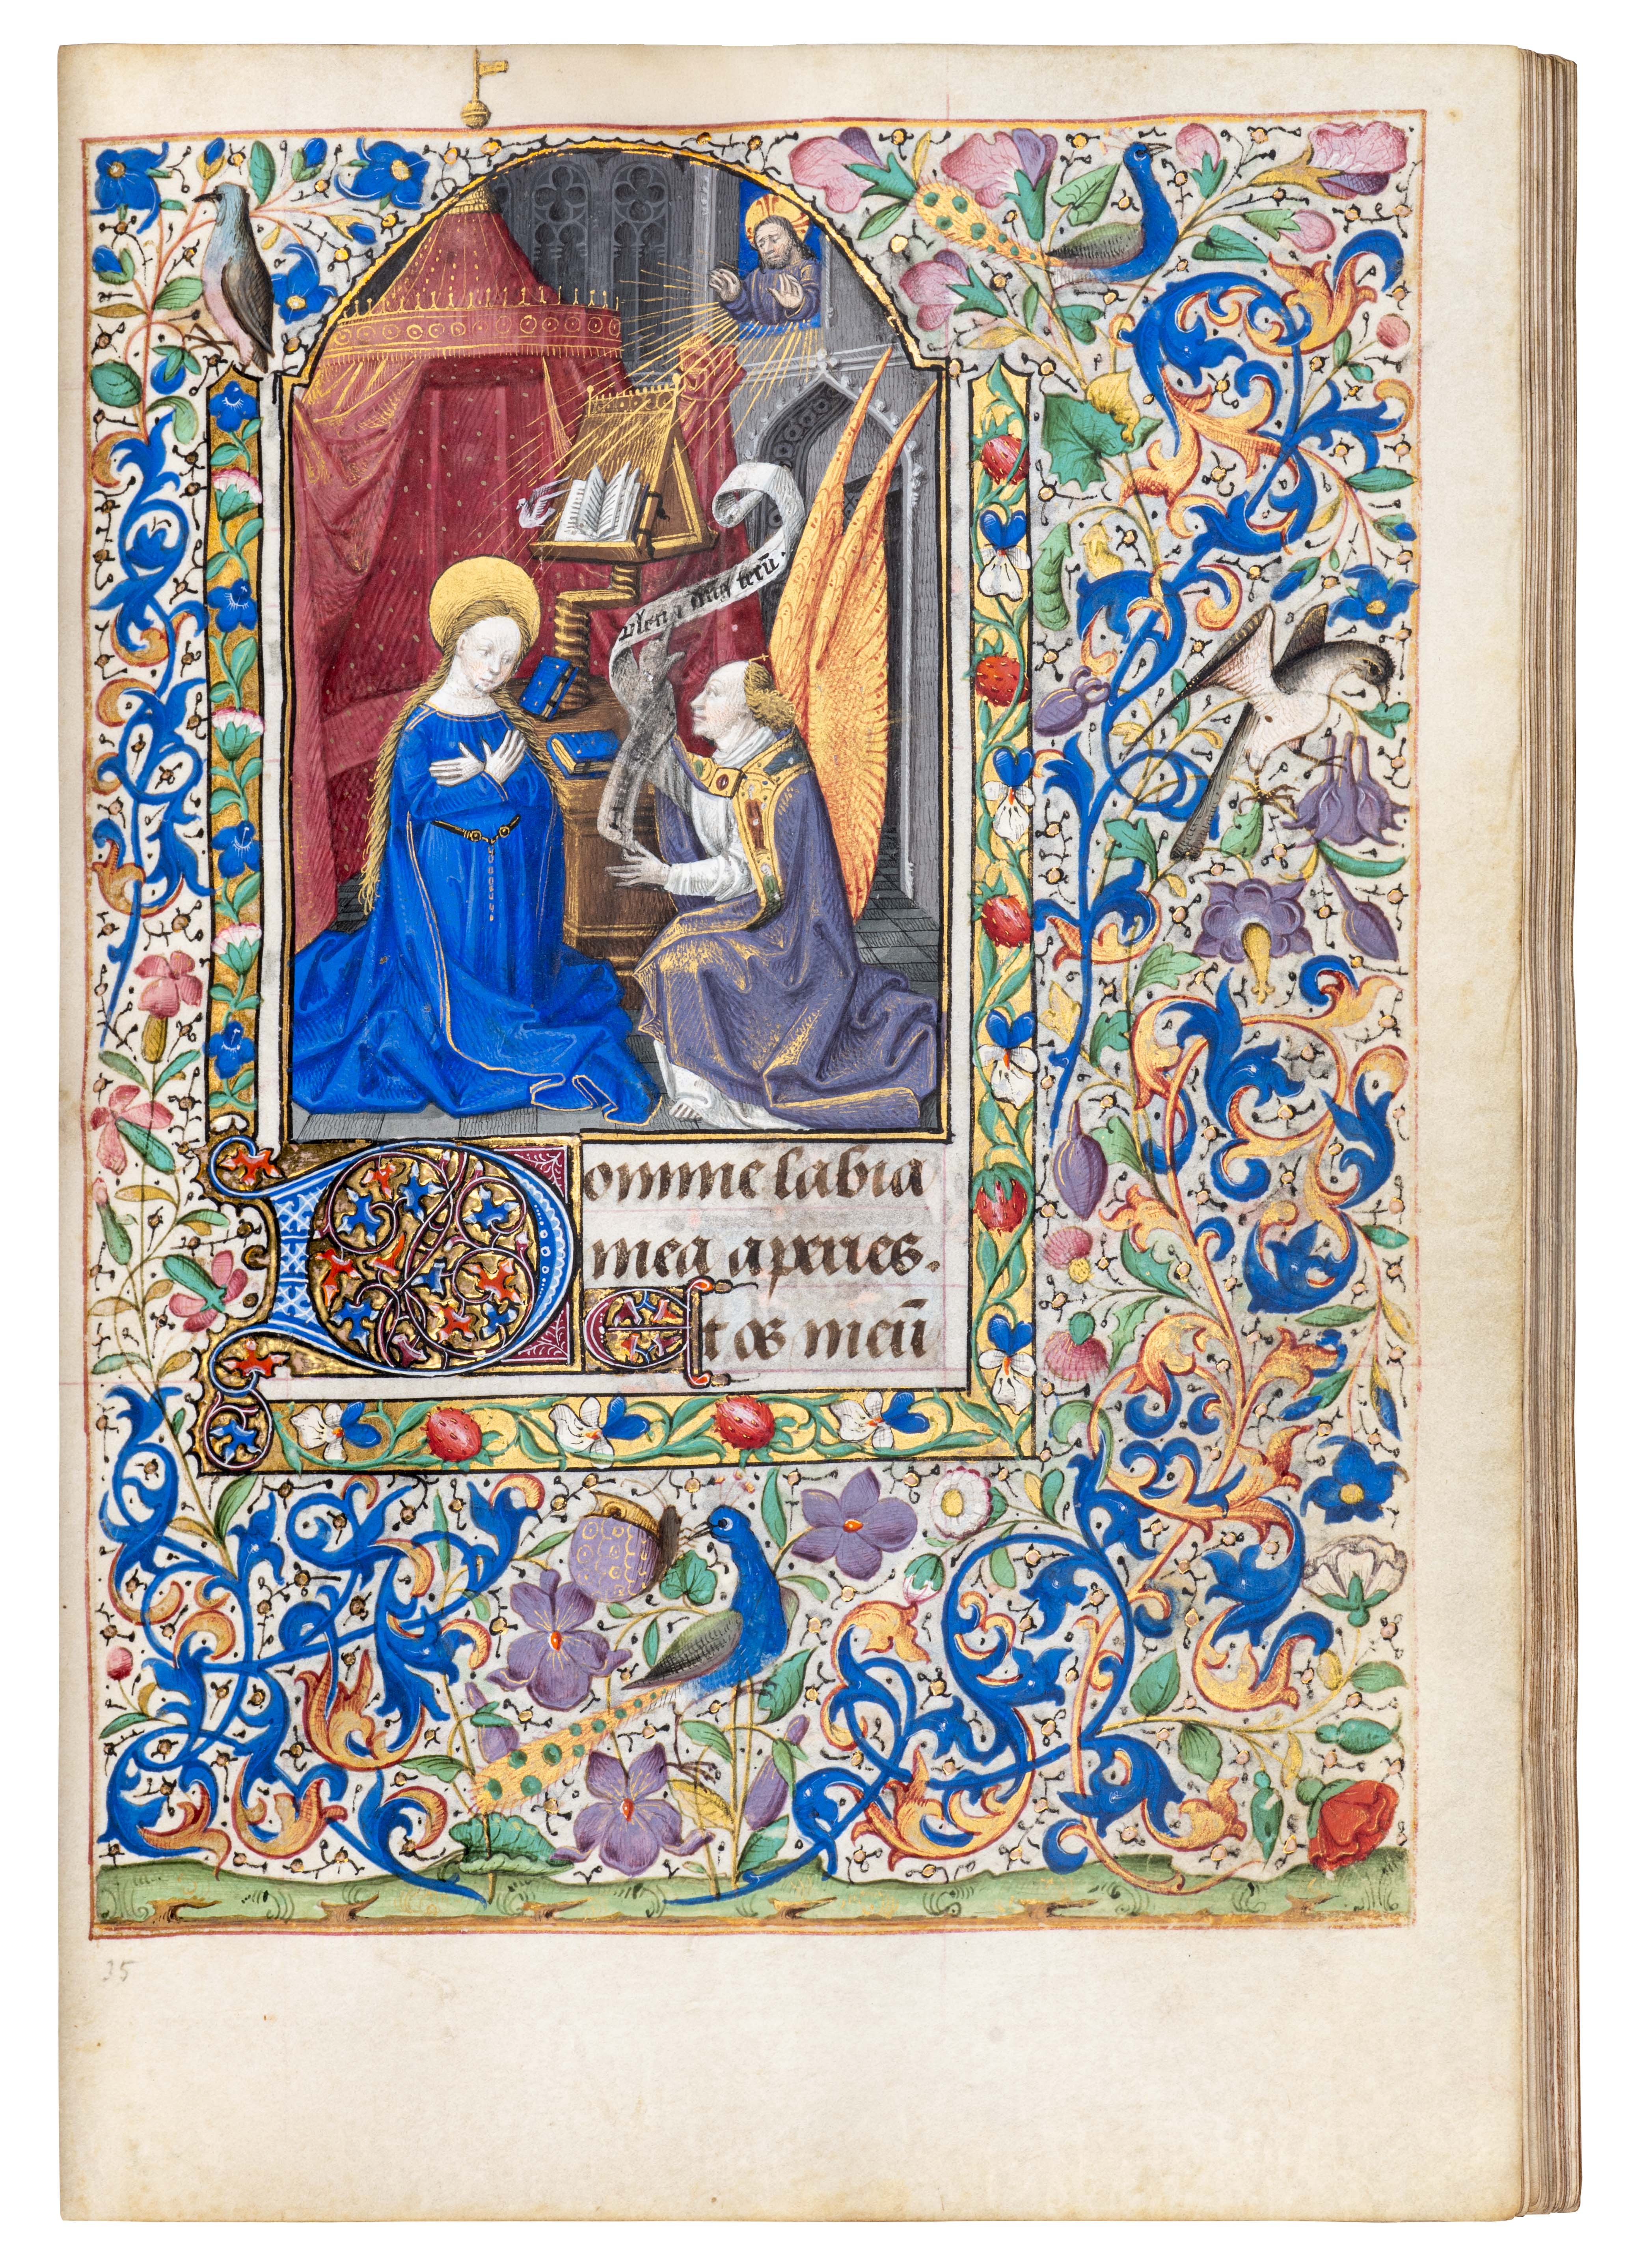 plena dns tecū.
Domine labia
mea aperies.
Et os meū
35